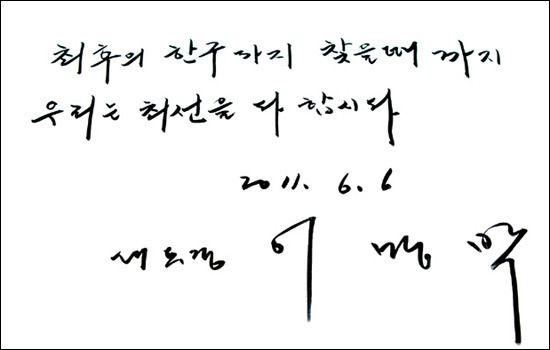 최후의 한구까지 찾을때 까지
우리는 최선을 다 합시다
2011. 6. 6
대통령 이 명 박